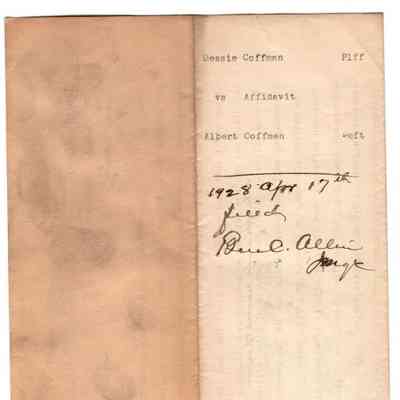 Dessie Coffman Plff
vs Affidavit
Albert Coffman Deft
1928 Apr 17th
filed
Ben C. Allin
Judge